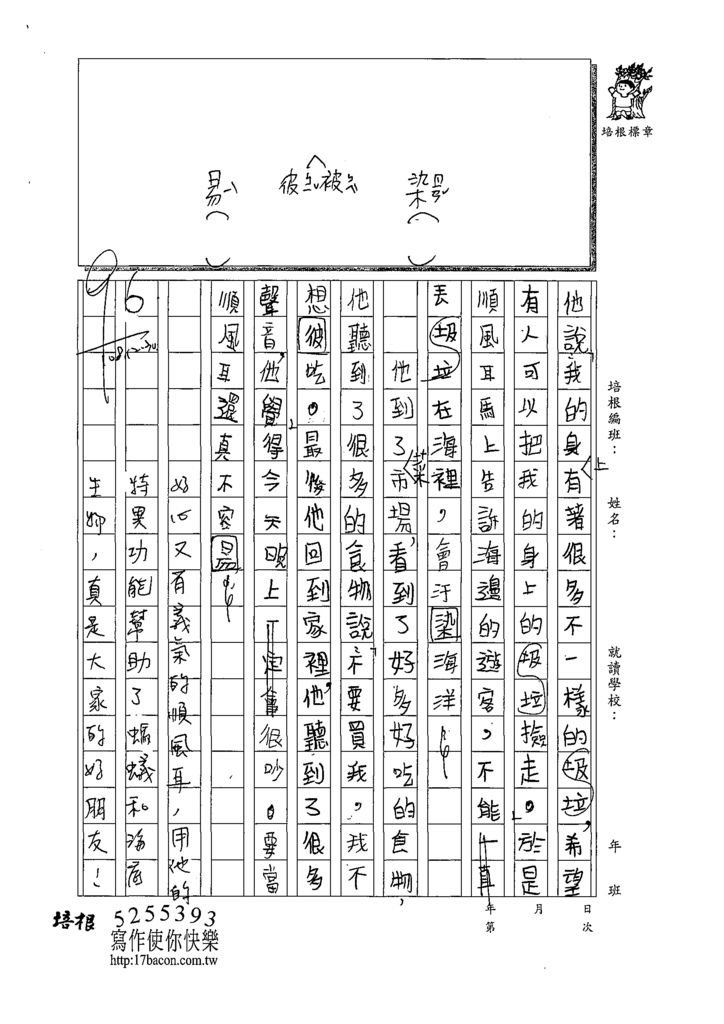 培根標章
染
彼 被
易
培根編班：
姓名：
就讀學校：
年 班
他說，我的身有著很多不一樣的圾垃，希望
上
有人可以把我的身上的圾垃撿走。於是
順風耳馬上告訴海邊的遊客，不能一直
丟圾垃在海裡，會汙染海洋
他到了市場，看到了好多好吃的食物，
菜
他聽到了很多的食物說：不要買我，我不
想彼吃。最後他回到家裡，他聽到了很多
聲音，他覺得今天晚上一定會很吵。要當
順風耳還真不容易
好心又有義氣的順風耳，用他的
特異功能幫助了螞蟻和海底
生物，真是大家的好朋友！
96
年 月 日
第 次
培根 5255393
寫作使你快樂
http:17bacon.com.tw